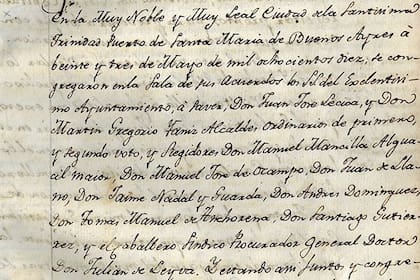 En la Muy Noble y Muy Leal Ciudad dela Santisima
Trinidad Puerto de Santa Maria de Buenos Ayres à
beinte y tres de Mayo de mil ochocientos diez, se con-
gregaron en la Sala de sus Acuerdos los S.S. del Excelentisi-
mo Ayuntamiento, à saver, Don Juan Jose Lecica, y Don
Martin Gregorio Yaniz Alcaldes ordinarios de primero,
y segundo voto, y Regidores Don Manuel Mancilla Algua-
cil maior, Don Manuel Jose de Ocampo, Don Juan de Lla-
no, Don Jaime Nadal y Guarda, Don Andres Dominguez,
Don Tomas Manuel de Anchorena, Don Santiago Gutier-
rez, y el Caballero Sindico Procurador General Doctor
Don Julian de Leyva, Y estando asi junto, y congre